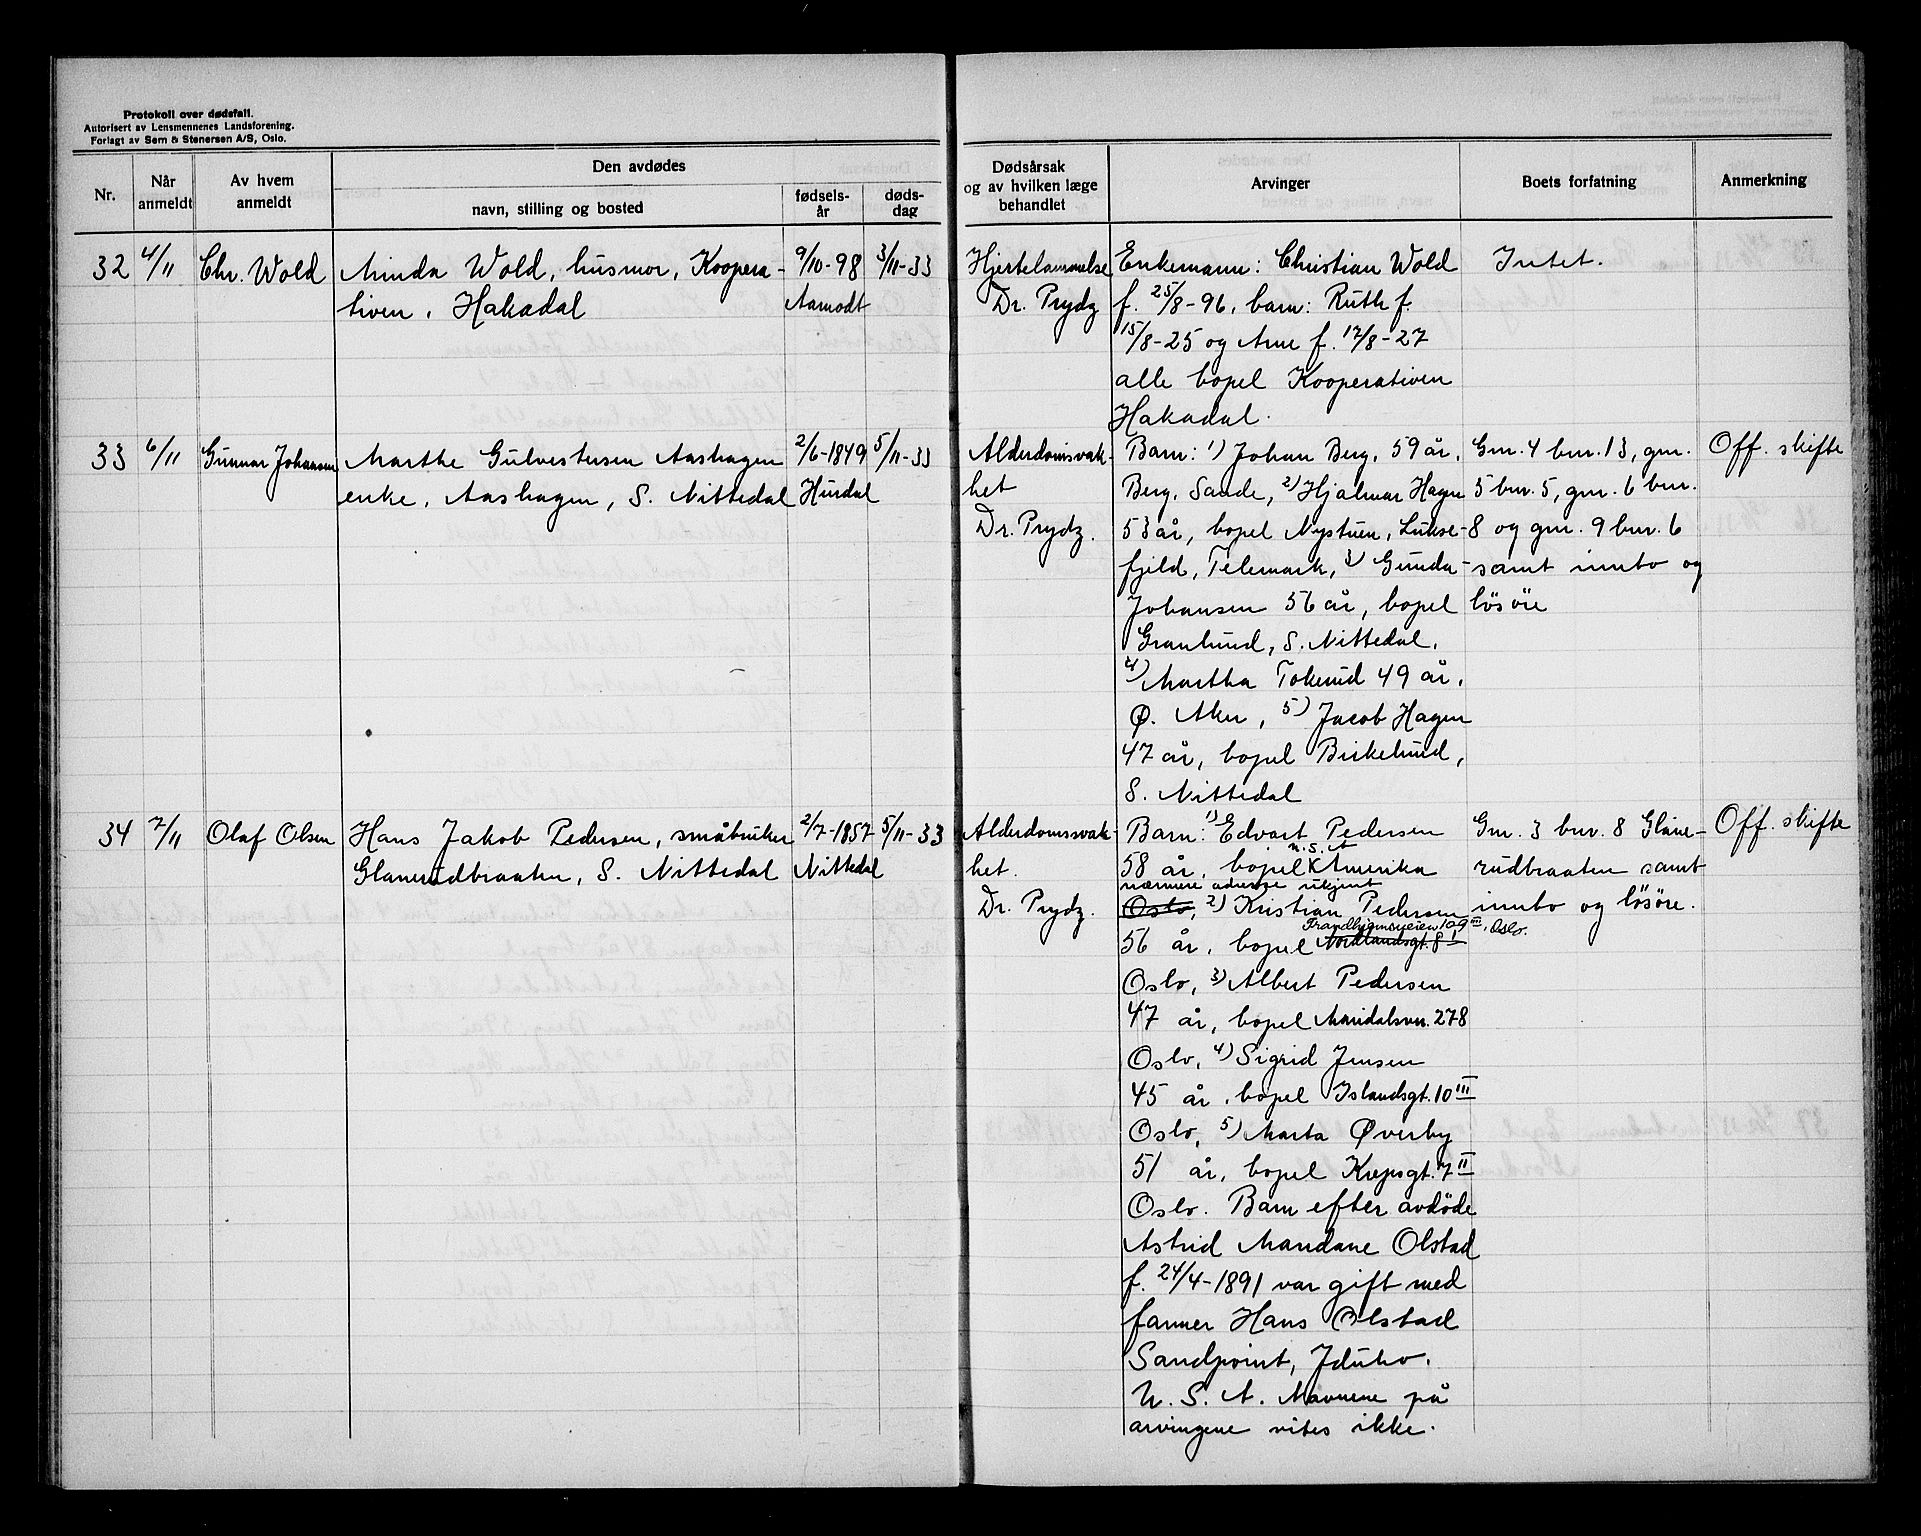 Protokoll over dødsfall.
Autorisert av Lensmennenes Landsforening.
Forlagt av Sem & Stenersen A/S, Oslo.
Nr.
Når anmeldt
Av hvem anmeldt
Den avdødes
navn, stilling og bosted
fødsels-
år
døds-
dag
Dødsårsak
og av hvilken læge
behandlet
Arvinger
Boets forfatning
Anmerkning
32 4/11 Chr. Wold Minda Wold, husmor, Koopera- 9/10-98 3/11-33
tiven, Hakadal Aamodt
Hjertelammelse
Dr. Prydz
Enkemann: Christian Wold
f. 25/8-96, barn: Ruth f.
15/8-25 og Arne f. 17/8-27
alle bopel Kooperativen
Hakadal.
Intet.
33 6/11 Gunnar Johansen Marthe Gulvestersen Aashagen 2/6-1849 5/11-33
enke, Aashagen, S. Nittedal Hurdal
Alderdomsvak-
het
Dr. Prydz.
Barn: 1) Johan Berg, 59 år,
Berg, Sande, 2) Hjalmar Hagen
53 år, bopel Nystuen, Lukse-
fjeld, Telemark, 3) Gunda
Johansen 56 år, bopel
Granlund, S. Nittedal,
4) Martha Tokerud 49 år,
Ø. Aker, 5) Jacob Hagen
47 år, bopel Birkelund,
S. Nittedal
Gnr. 4 bnr. 13, gnr.
5 bnr. 5, gnr. 6 bnr.
8 og gnr. 9 bnr. 6
samt innbo og
løsøre
Off. skifte
34 7/11 Olaf Olsen Hans Jakob Pedersen, småbruker 2/7-1857 5/11-33
Glanerudbraaten, S. Nittedal Nittedal
Alderdomssvak-
het.
Dr. Prydz.
Barn: 1) Edvart Pedersen
U.S.A
58 år, bopel Amerika
nærmere adresse ukjent
Oslo, 2) Kristian Pedersen
Trondhjemsveien 109 III, Oslo.
56 år, bopel Nordlandsgt. 8 I
Oslo, 3) Albert Pedersen
47 år, bopel Maridalsvn. 278
Oslo, 4) Sigrid Jensen
45 år, bopel Islandsgt. 10 III
Oslo, 5) Marta Øverby
51 år, bopel Krepsgt. 7 II
Oslo. Barn efter avdøde
Astrid Mandane Olstad
f. 24/4-1891 var gift med
farmer Hans Olstad
Sandpoint, Iduho.
U. S. A. Navnene på
arvingene vites ikke.
Gnr. 3 bnr. 8 Glane-
rudbraaten samt
innbo og løsøre.
Off. skifte